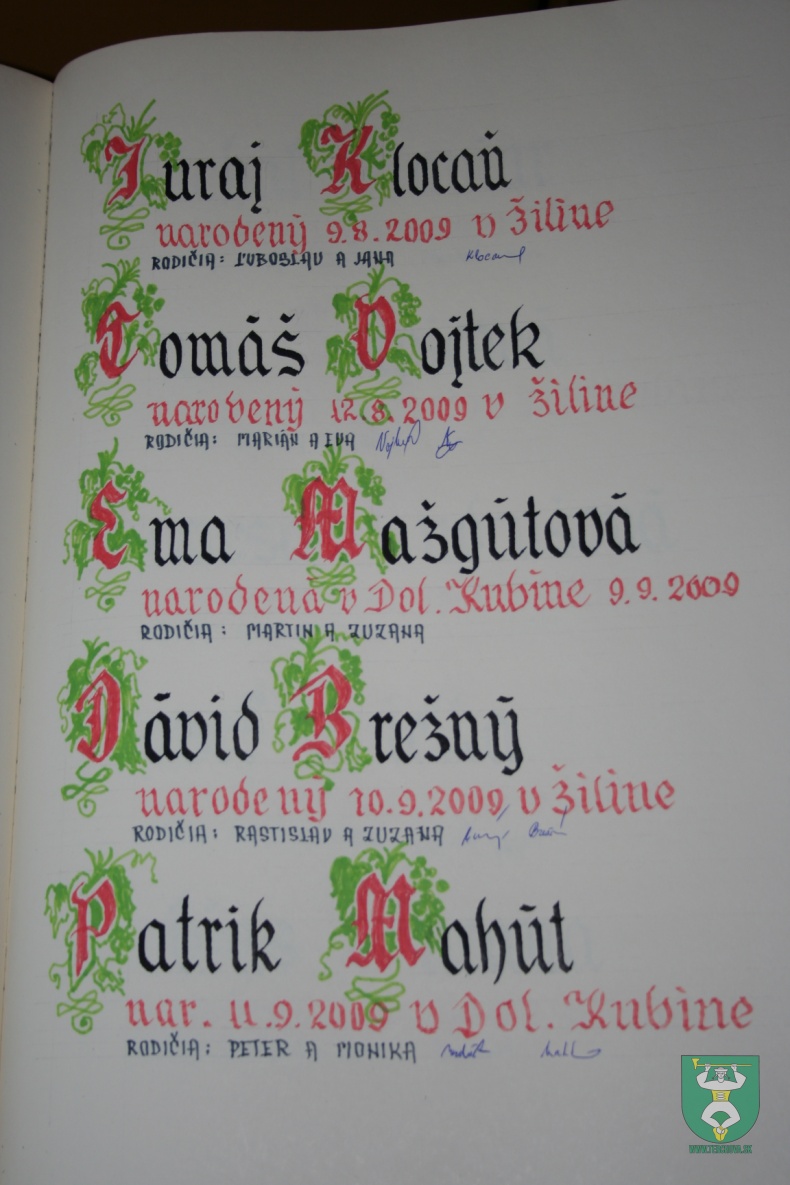 Juraj Klocaň
narodený 9.8.2009 v Žiline
RODIČIA: ĽUBOSLAV A JANA
Tomáš Vojtek
narodený 12.8.2009 v Žiline
RODIČIA: MARIÁN A EVA
Ema Mažgútová
narodená v Dol. Kubíne 9.9.2009
RODIČIA: MARTIN A ZUZANA
Dávid Brežný
narodený 10.9.2009 v Žiline
RODIČIA: RASTISLAV A ZUZANA
Patrik Mahút
nar. 11.9.2009 v Dol. Kubíne
RODIČIA: PETER A MONIKA
WWW.TERCHOVA.SK